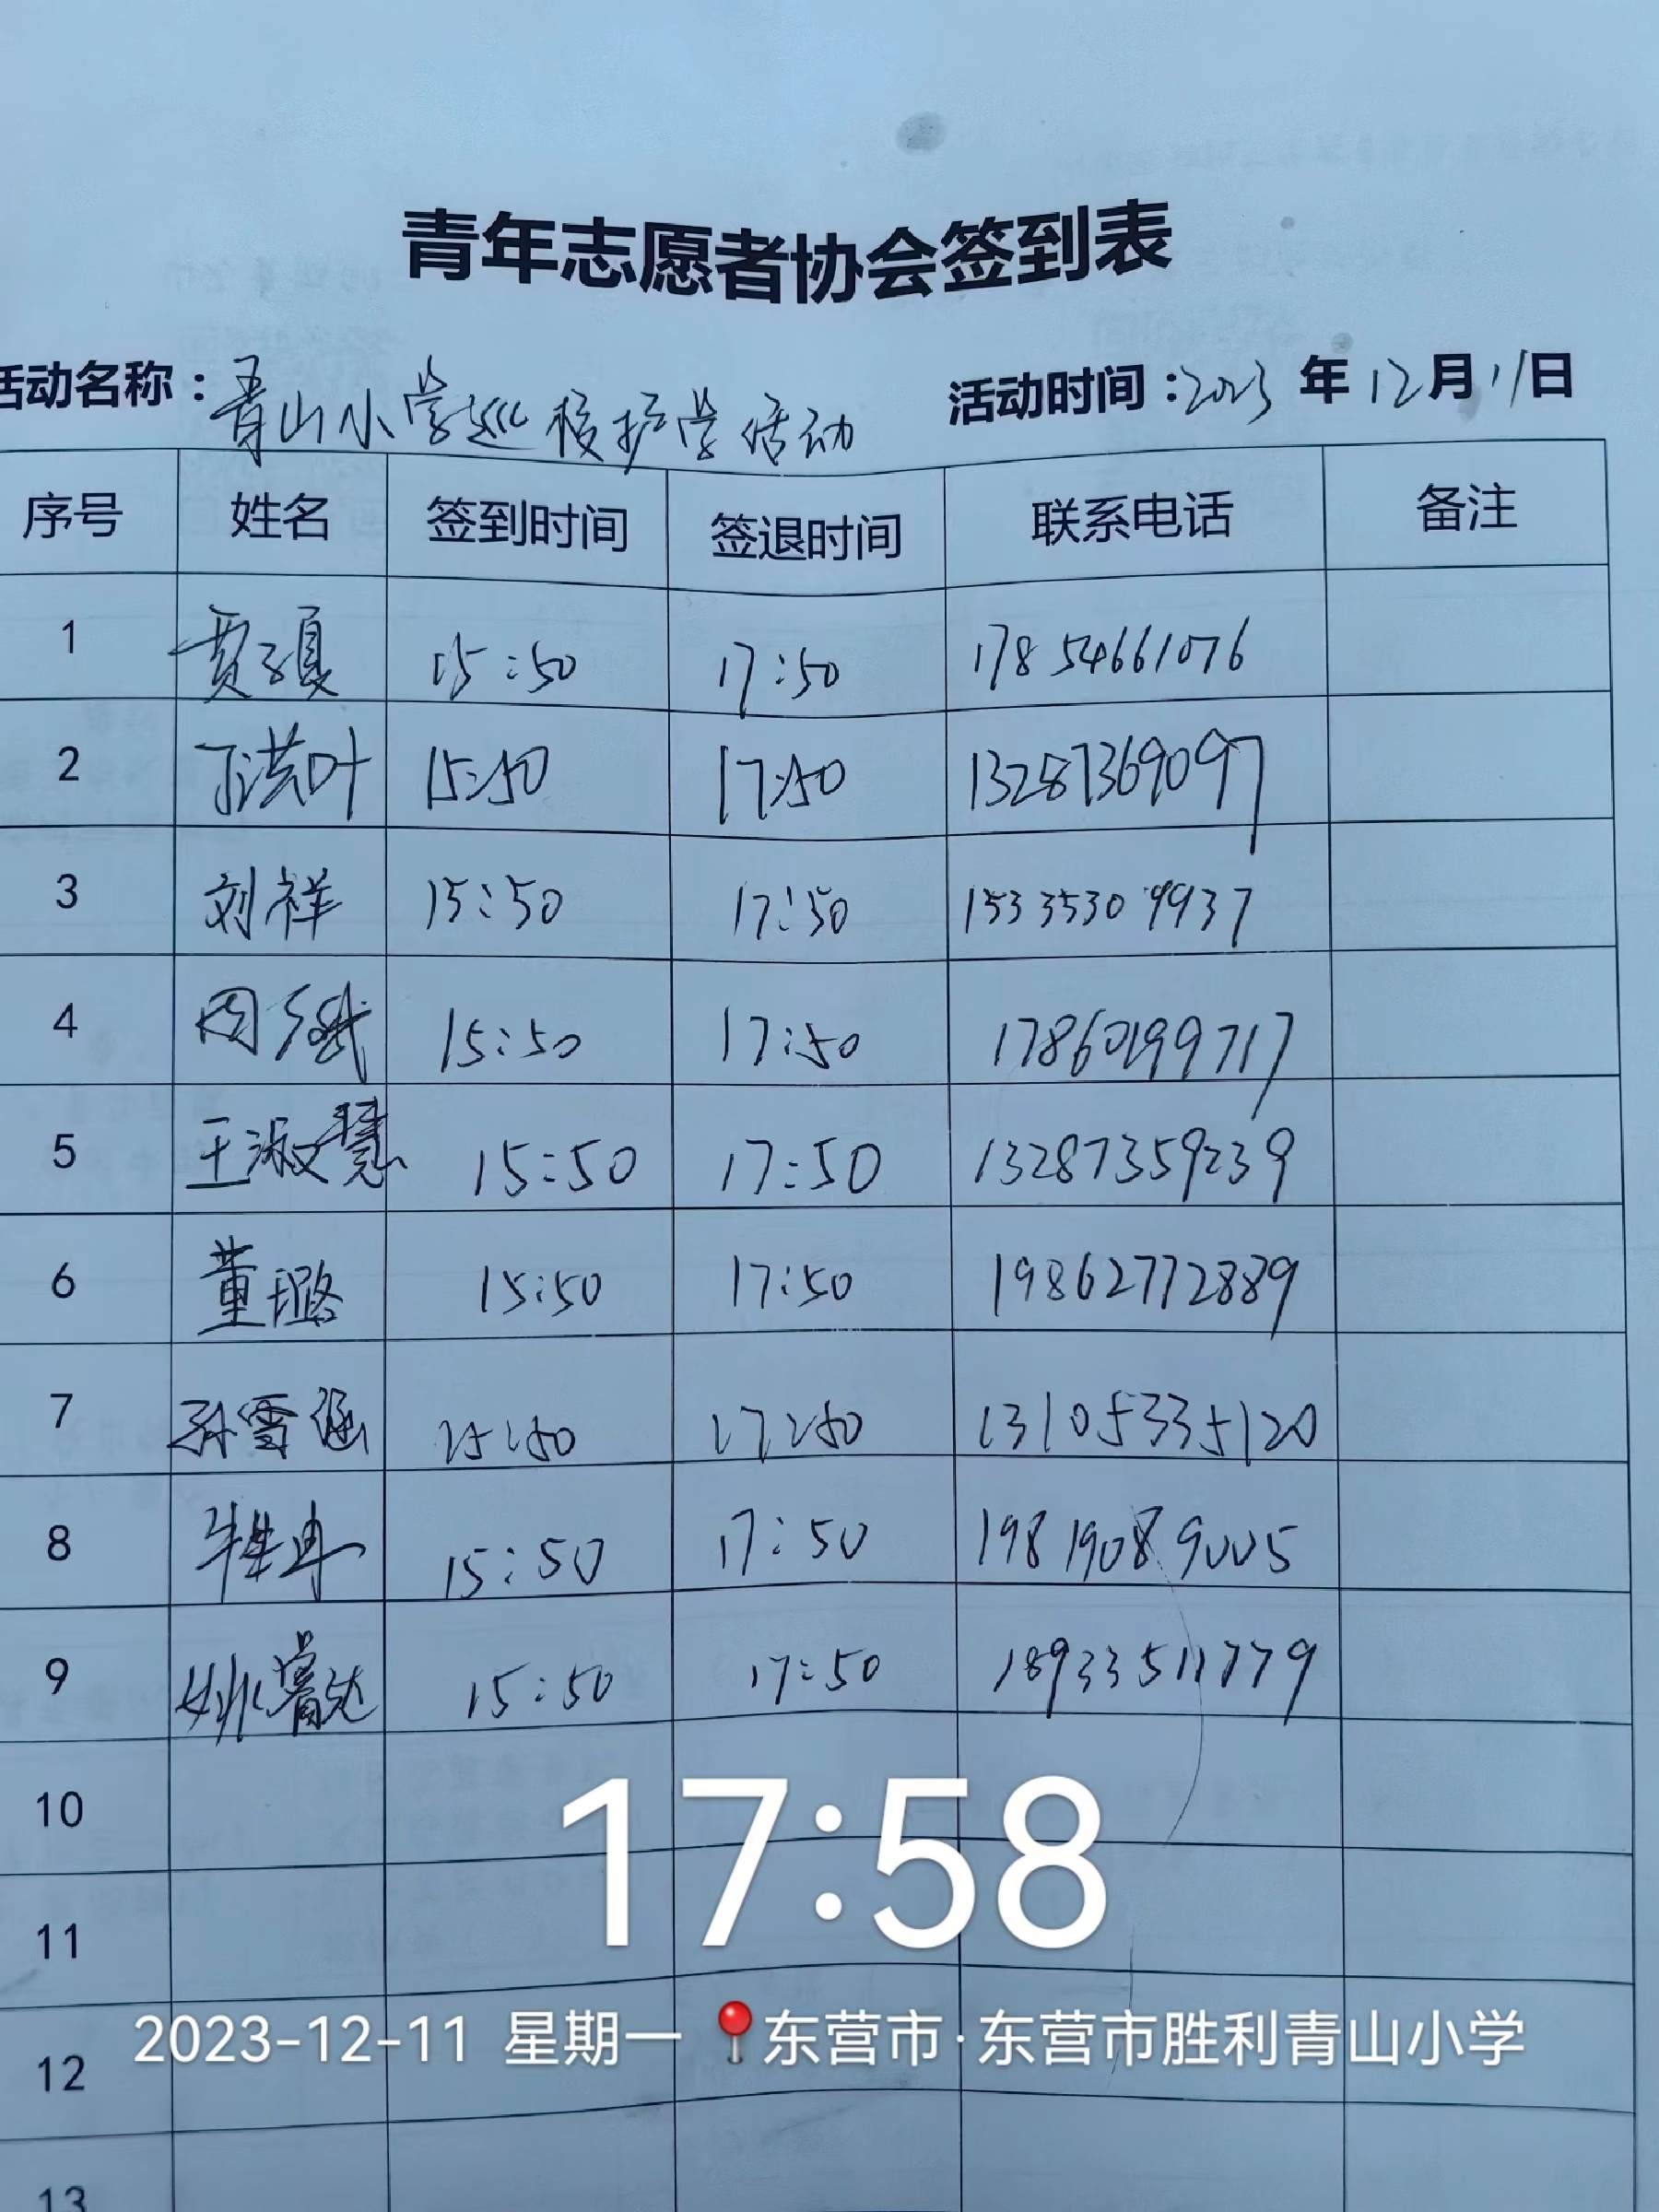 青年志愿者协会签到表
活动名称：青山小学巡校护学活动 活动时间：2023年12月11日
序号 姓名 签到时间 签退时间 联系电话 备注
1 贾子夏 15:50 17:50 17854661076
2 丁洪叶 15:50 17:50 13287369097
3 刘祥 15:50 17:50 15335309937
4 周 15:50 17:50 17860199717
5 王淑慧 15:50 17:50 13287359239
6 董璐 15:50 17:50 19862772889
7 孙雪涵 15:50 17:50 13105335120
8 15:50 17:50 19819089005
9 姚睿达 15:50 17:50 18933511779
10
17:58
11
2023-12-11 星期一 东营市·东营市胜利青山小学
12
13